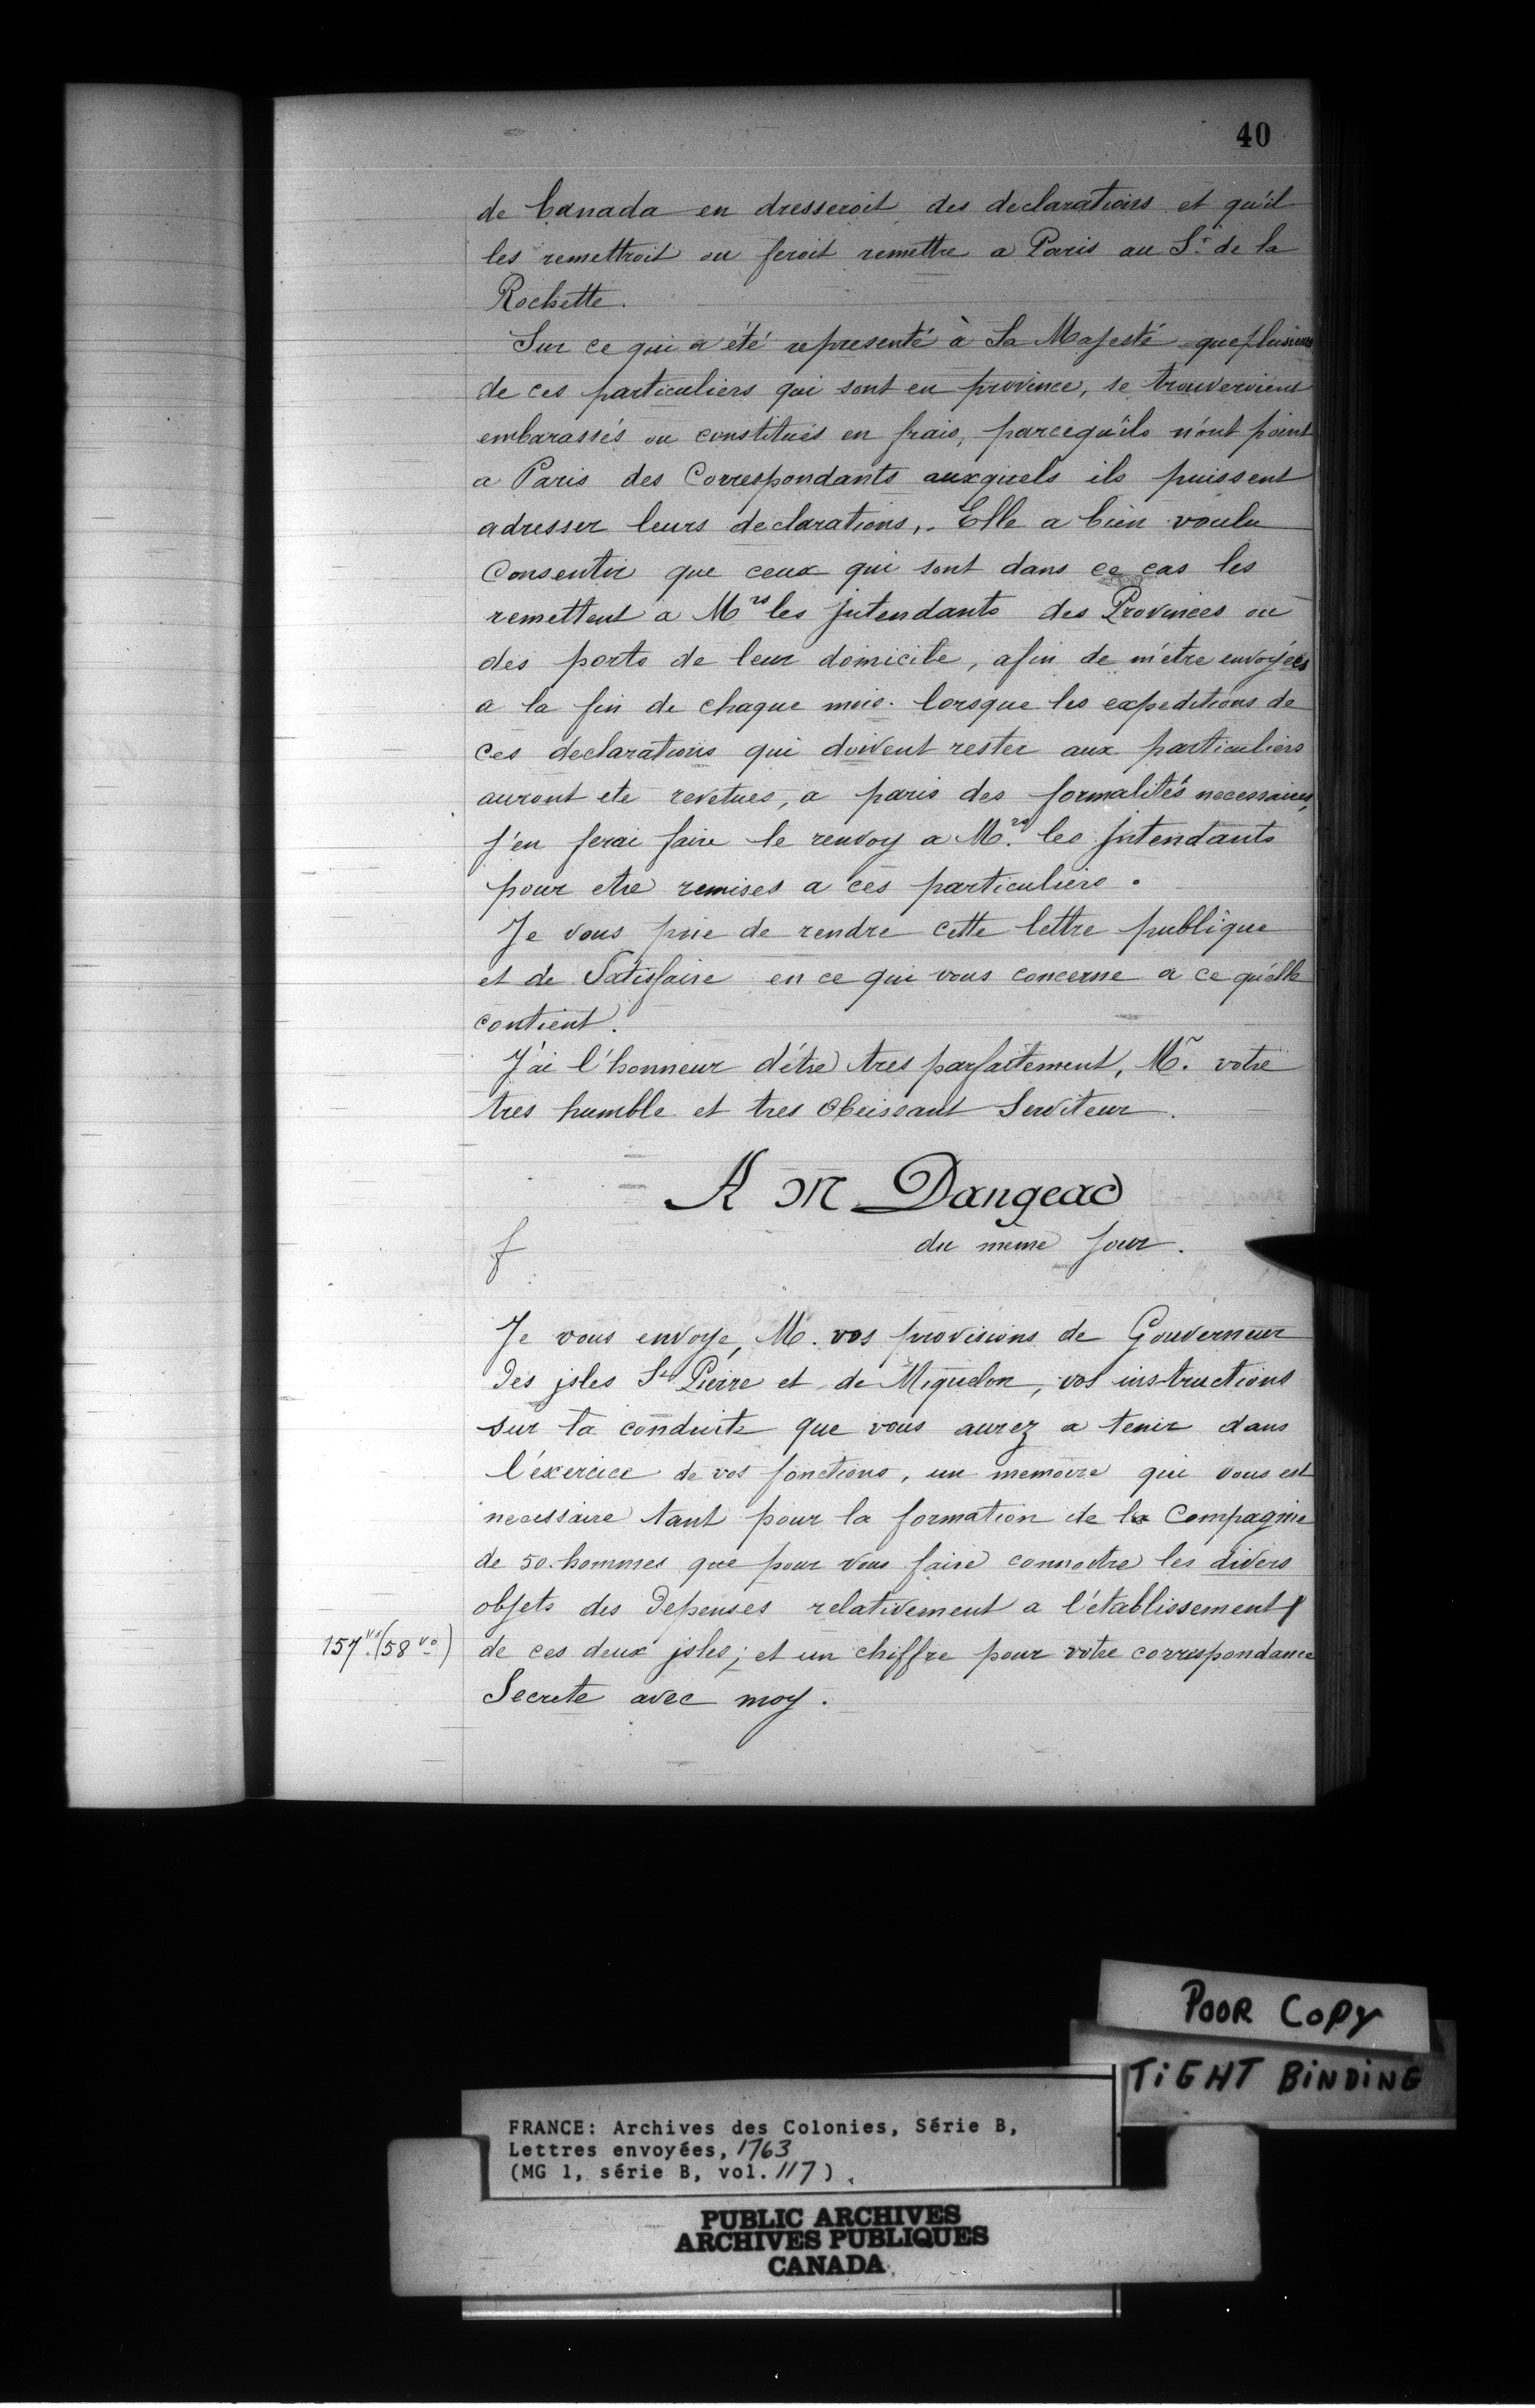 40
de Canada en dresseroit des declarations et qu'il
les remettroit ou feroit remettre a Paris au Sr. de la
Rochette.
Sur ce qui a été representé à Sa Majesté que plusieurs
de ces particuliers qui sont en province, se trouveroient
embarassés ou constitués en frais, parcequ'ils n'ont point
a Paris des Correspondants auxquels ils puissent
adresser leurs declarations, Elle a bien voulu
Consentir que ceux qui sont dans ce cas les
remettent a Mrs les jntendants des Provinces ou
des ports de leur domicile, afin de m'etre envoyées
a la fin de chaque mois. lorsque les expeditions de
ces declarations qui doivent rester aux particuliers
auront ete revetues, a paris des formalités necessaires,
j'en ferai faire le renvoy a Mrs. les jntendants
pour etre remises a ces particuliers.
Je vous prie de rendre cette lettre publique
et de Satisfaire en ce qui vous concerne a ce qu'elle
contient.
J'ai l'honneur d'être tres parfaitement, Mr. votre
tres humble et tres obeissant Serviteur.
A M Dangeac
du meme jour.
f
Je vous envoye, M. vos provisions de Gouverneur
des jsles St Pierre et de Miquelon, vos instructions
sur la conduite que vous aurez a tenir dans
l'éxercice de vos fonctions, un memoire qui vous est
necessaire tant pour la formation de la Compagnie
de 50 hommes que pour vous faire connoitre les divers
objets des Depenses relativement a l'établissement
157 vo. (58 vo) de ces deux jsles; et un chiffre pour votre correspondance
Secrete avec moy.
POOR COPY
TIGHT BINDING
FRANCE: Archives des Colonies, Série B,
Lettres envoyées, 1763
(MG 1, série B, vol. 117)
PUBLIC ARCHIVES
ARCHIVES PUBLIQUES
CANADA